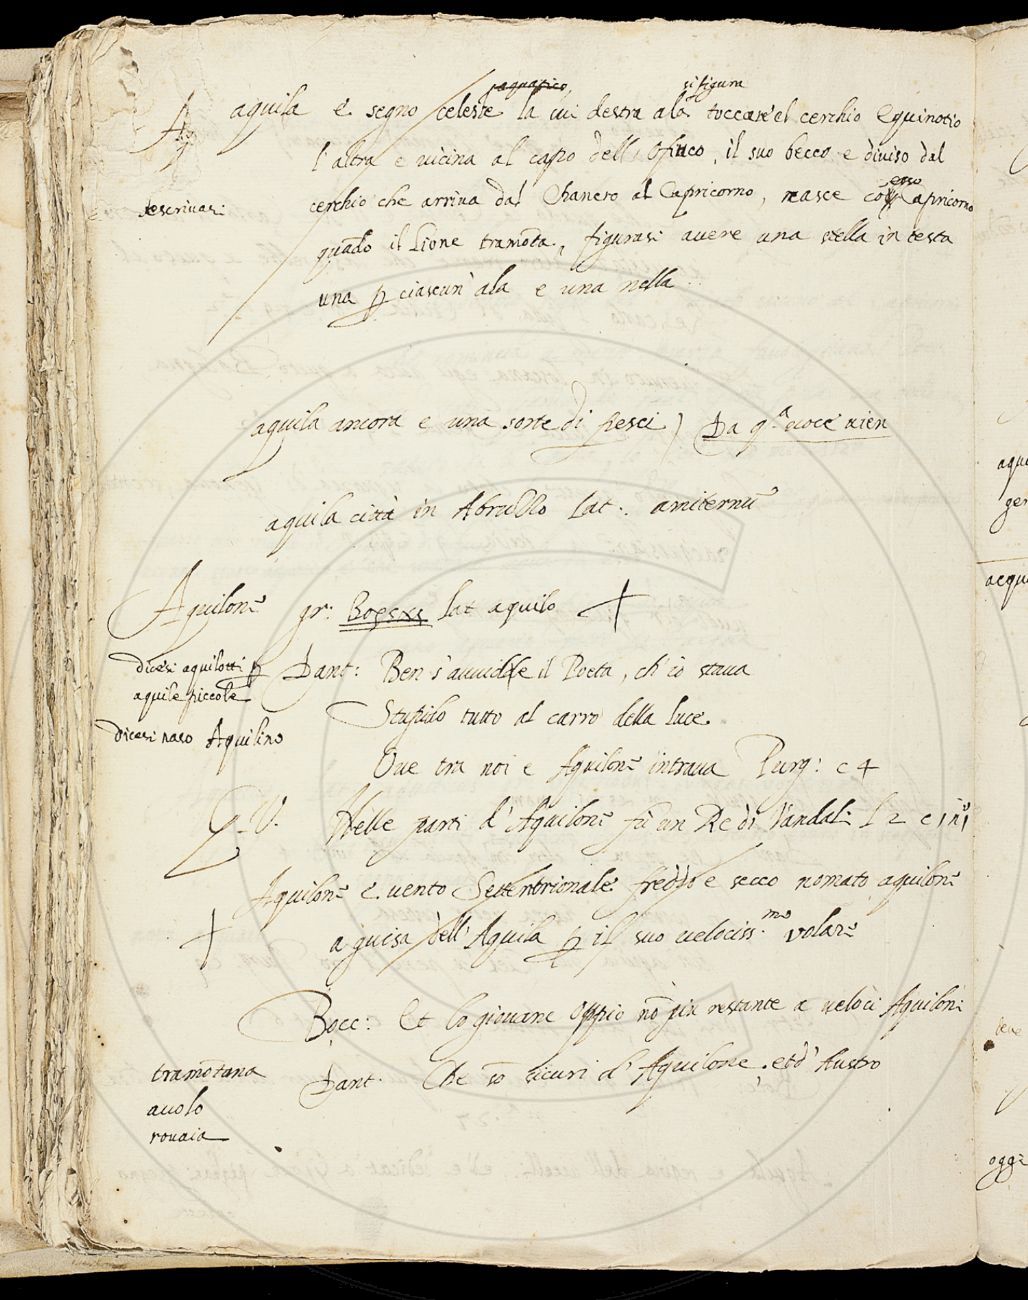 aquatico si figura
aquila è segno celeste la cui destra ala toccare el cerchio Equinotio
l'altra e vicina al capo dell'Ofiuco, il suo becco e diviso dal
descrivasi
cerchio che arriva dal Chancro al Capricorno, nasce col esso Capricorno
quãdo il Lione tramõta, figurasi avere una stella in testa
una p ciascun' ala e una nella
aquila ancora e una sorte di pesci) Da qª voce vien
aquila città in Abruzzo Lat: amiternũ
Aquilonᵉ gr: Βορεας lat aquilo
dicesi aquilotti p
aquile piccole
dicesi naso Aquilino
Dant: Ben s'avvidde il Poeta, ch'io stava
Stupido tutto al carro della luce
Ove tra noi e Aquilonᵉ intrava Purg: c 4
G. V. Nelle parti d'Aquilonᵉ fù un Re di Vandali L 2 c
Aquilonᵉ e vento Settentrionale freddo e secco nomato aquilonᵉ
a guisa dell'Aquila p il suo velociss.ᵐᵒ volarᵉ
Bocc: Et lo giovane nõ giu restante a veloci Aquiloni
Dant. Che sõ sicuri d'Aquilone, et d'Austro
tramõtana
avolo
rovaia
acqu
ogg